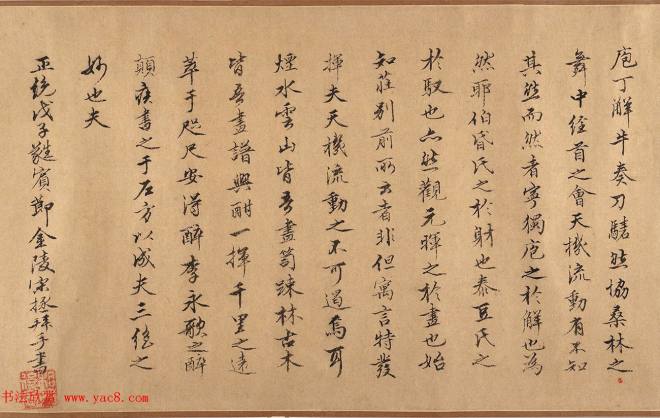 庖丁觧牛奏刀騞然協桑林之
舞中經首之會天機流動有不知
其然而然者寧獨庖之於解也為
然耶伯昏氏之於射也泰豆氏之
於馭也亦然觀元暉之於畫也始
知莊列前所云者非但寓言特發
揮夫天機流動之不可遏焉耳
煙水雲山皆吾畫笥疎林古木
皆吾畫譜興酣一揮千里之遠
萃于咫尺安得醉李永歌之醉
顛疾書之于左方以成夫三絕之
妙也夫
正統戊子蕤賓節金陵宋拯拜手書
书法欣赏 www.yac8.com